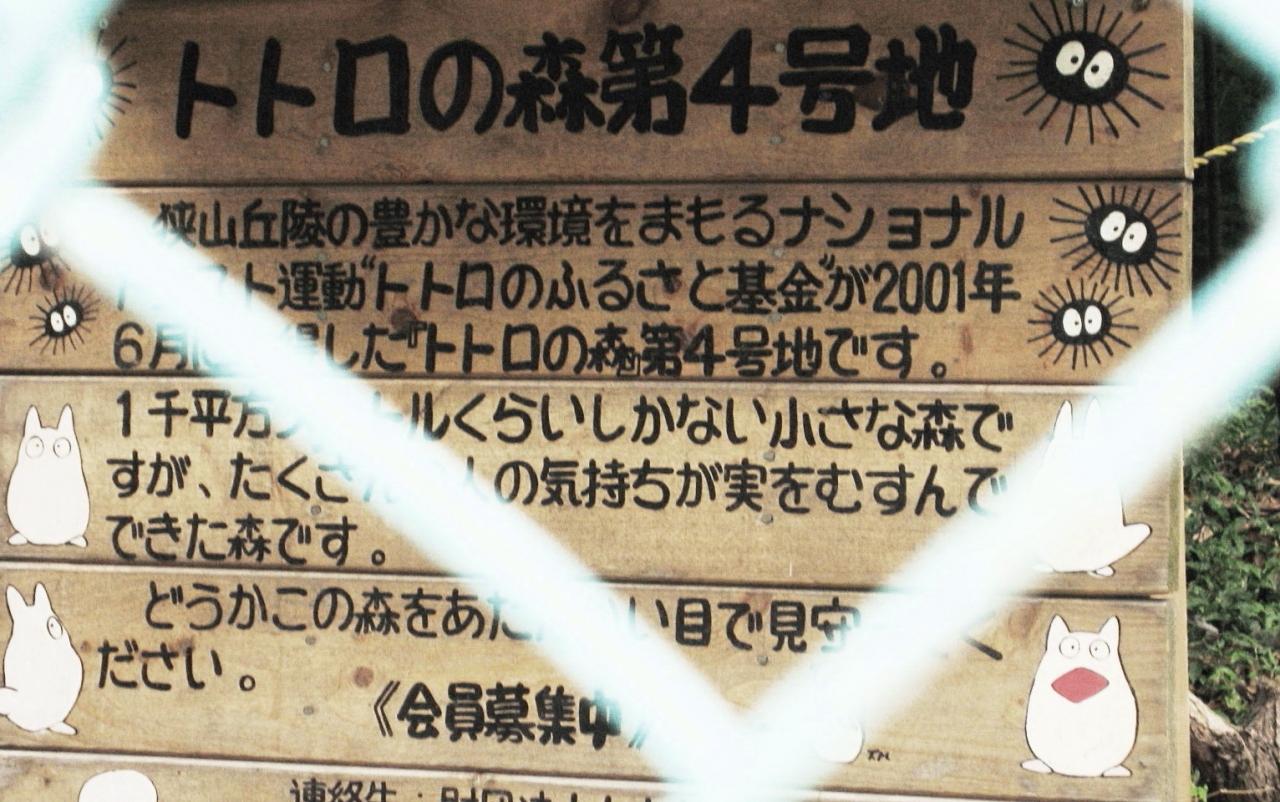 トトロの森第4号地
狭山丘陵の豊かな環境をまもるナショナル
スト運動"トトロのふるさと基金"が2001年
6月に 得した『トトロの森』第4号地です。
1千平方 トルくらいしかない小さな森で
すが、たくさん 人の気持ちが実をむすんで
できた森です。
どうかこの森をあた い目で見守 く
ださい。
《会員募集中》
連絡先:財団法人